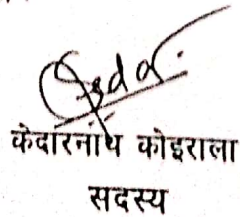 केदारनाथ कोइराला
सदस्य